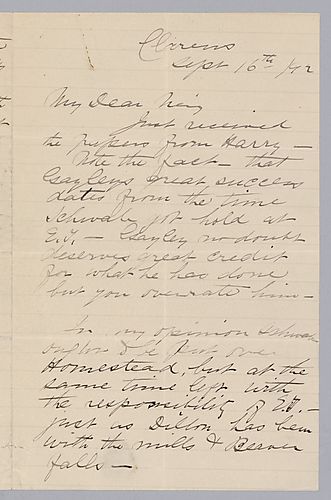 Clarens
Sept 16th /92
My Dear
Just received
the papers from Harry —
Note the fact — that
Gayleys great success
dates from the time
Schwab got hold at
E.T. — Gayley no doubt
deserves great credit
for what he has done
but you overrate him —
In my opinion Schwab
be put over
Homestead, but at the
same time left with
the responsibility of E.T. —
just as Dillon has been
with the mills & Beaver
falls —